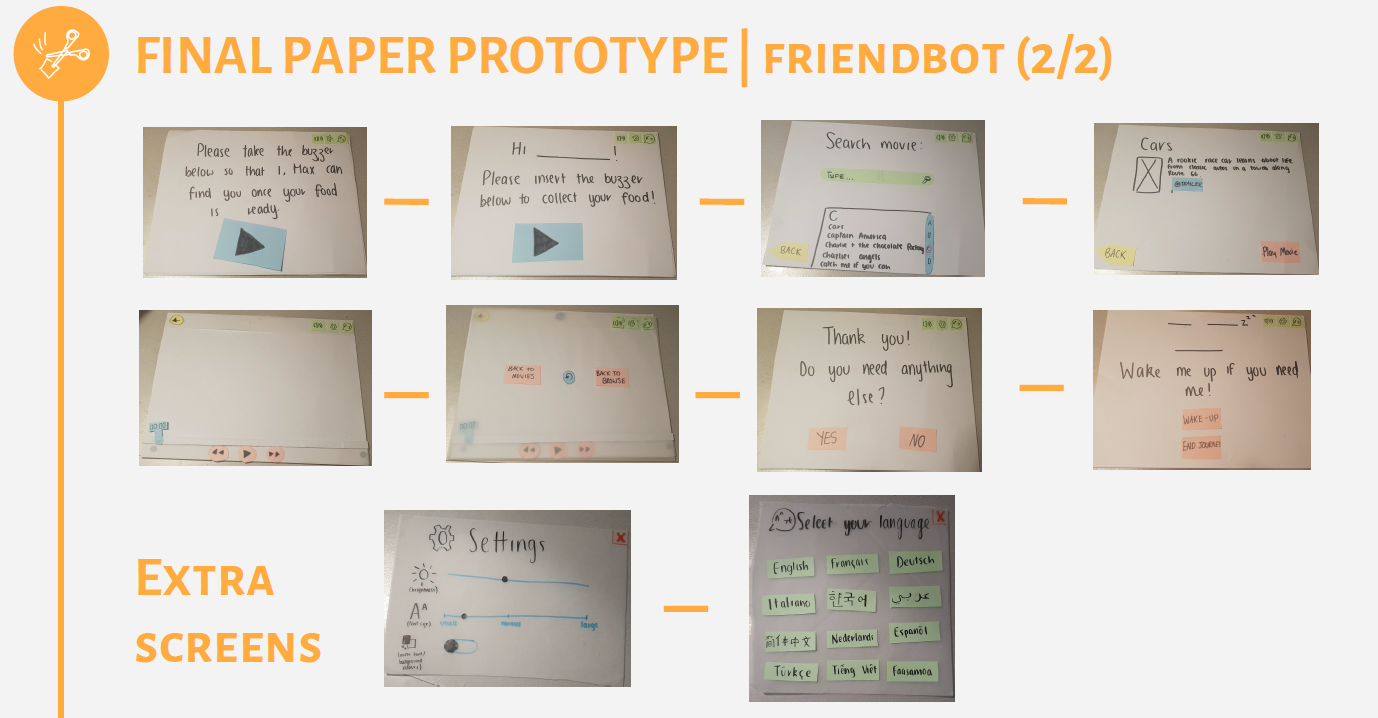 FINAL PAPER PROTOTYPE | FRIENDBOT (2/2)
Please take the buzzer
below so that I, Max can
find you once your food
is ready.
Hi __________!
Please insert the buzzer
below to collect your food!
Search movie:
TYPE...
C
Cars
Captain America
Charlie + the chocolate factory
Charlies angels
Catch me if you can
A
B
C
D
BACK
Cars
A rookie race car learns about life
from classic autos in a town along
Route 66
TRAILER
BACK
Play Movie
00:00
BACK TO
MOVIES
BACK TO
BROWSE
Thank you!
Do you need anything
else?
YES
NO
zzz
Wake me up if you need
me!
WAKE-UP
END JOURNEY
EXTRA
SCREENS
Settings
(brightness)
AA
(font size)
small
normal
large
Select your language
English
Français
Deutsch
Italiano
한국어
عربي
简体中文
Nederlands
Español
Türkçe
Tiếng Việt
Faasamoa